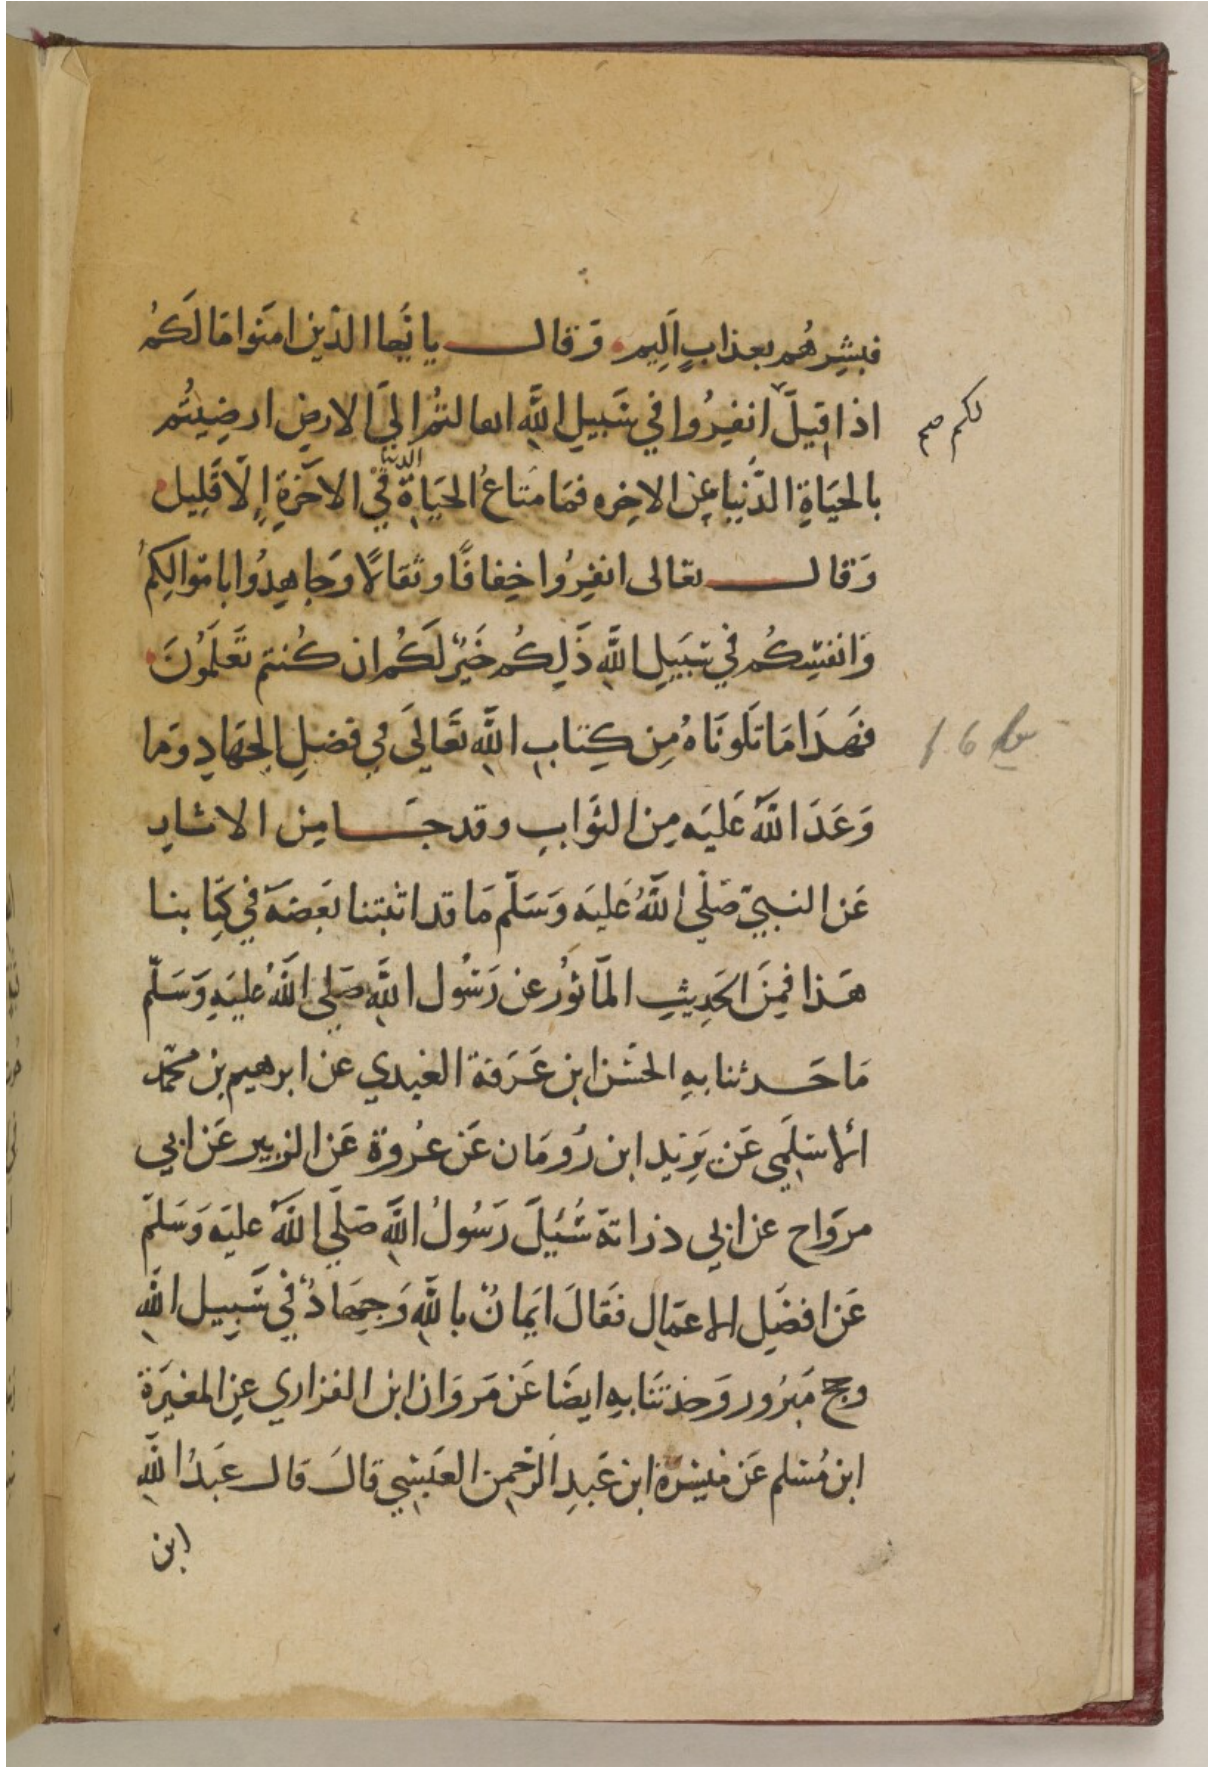 فبشرهم بعذاب اليم وقال يا ايها الذين امنوا مالكم
اذا قيل انفروا في سبيل الله اثاقلتم الى الارض ارضيتم
لكم صح
بالحياة الدنيا من الاخره فما متاع الحياة الدنيا في الآخرة إلا قليل
وقال تعالى انفروا خفافًا وثقالًا وجاهدوا باموالكم
وانفسكم في سبيل الله ذلكم خير لكم ان كنتم تعلمون
فهذا ما تلوناه من كتاب الله تعالى في فضل الجهاد وما
وعد الله عليه من الثواب وقد جا من الاثار
عن النبي صلى الله عليه وسلم ما قد اثبتنا بعضه في كتابنا
هذا فمن الحديث المأثور عن رسول الله صلى الله عليه وسلم
ما حدثنا به الحسن ابن عرفة العبدي عن ابرهيم بن محمد
الاسلمي عن يزيد ابن رومان عن عروة عن الزبير عن ابي
مرواح عن ابي ذر انه سئل رسول الله صلى الله عليه وسلم
عن افضل الاعمال فقال ايمان بالله وجهاد في سبيل الله
وحج مبرور وحدثنا به ايضا عن مروان ابن الفزاري عن المغيرة
ابن مسلم عن ميسرة ابن عبد الرحمن العبسي قال قال عبد الله
ابن